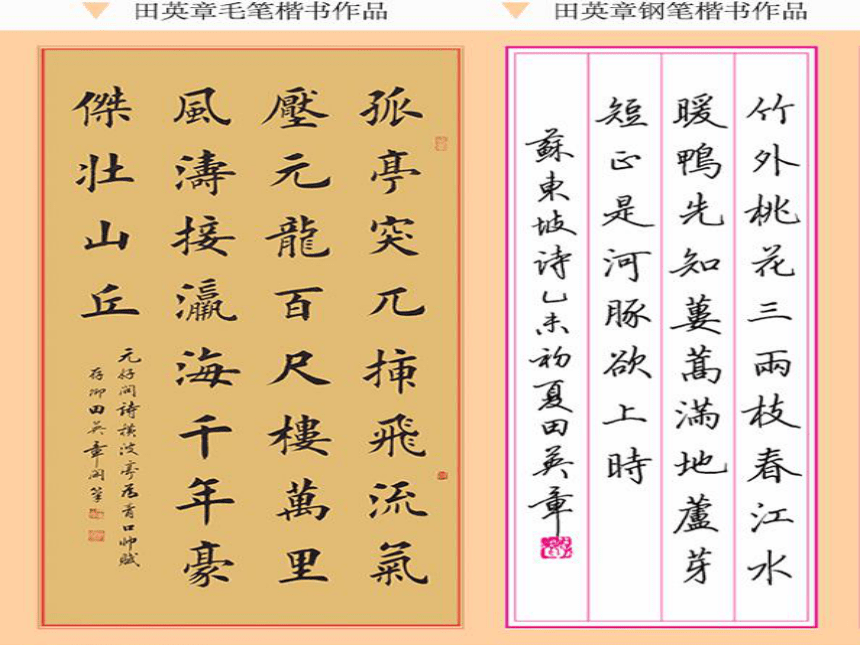 田英章毛笔楷书作品
孤亭突兀挿飛流氣
壓元龍百尺樓萬里
風濤接瀛海千年豪
傑壯山丘
元好问詩橫波亭为青口帅賦
存卿田英章
田英章钢笔楷书作品
竹外桃花三兩枝春江水
暖鴨先知蔞蒿滿地蘆芽
短正是河豚欲上時
蘇東坡诗乙未初夏田英章